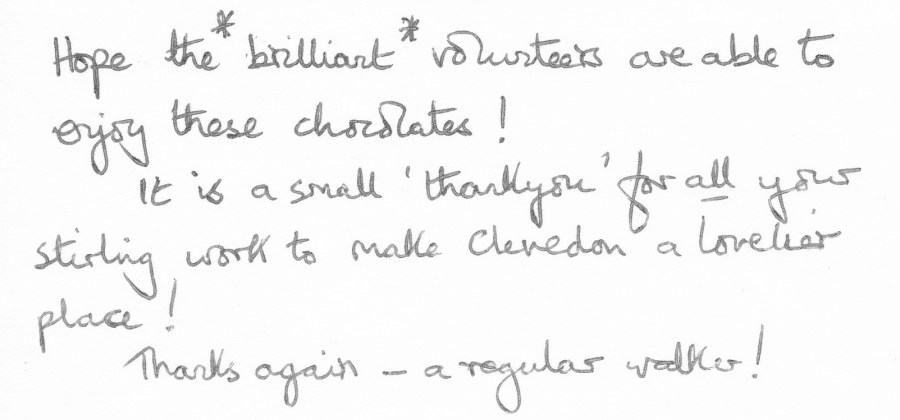 Hope the * brilliant * volunteers are able to
enjoy these chocolates!
It is a small 'thankyou' for all your
stirling work to make Clevedon a lovelier
place!
Thanks again – a regular walker!